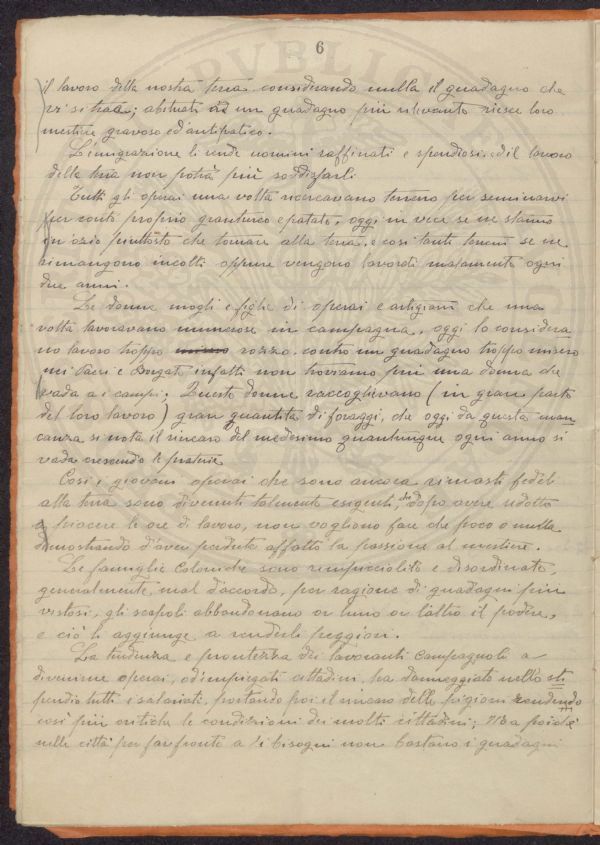 6
il lavoro della nostra terra considerando nulla il guadagno che
vi si trae; abituati ad un guadagno più rilevante riesce loro
mestiere gravoso ed antipatico.
L'emigrazione li rende uomini raffinati e spendiosi, ed il lavoro
della terra non potrà più soddisfarli.
Tutti gli operai una volta ricercavano terreno per seminarvi
per conto proprio granturco e patate, oggi in vece se ne stanno
in ozio piuttosto che tornare alla terra, e così tanti terreni se ne
rimangono incolti oppure vengono lavorati malamente ogni
due anni.
Le donne mogli e figlie di operai e artigiani che una
volta lavoravano numerose in campagna, oggi lo considera
no lavoro troppo rozzo, contro un guadagno troppo misero
nei Paesi e Borgate infatti non troviamo più una donna che
vada a i campi; Queste donne raccoglievano (in gran parte
del loro lavoro) gran quantita di foraggi, che oggi da questa man
canza si nota il rincaro del medesimo quantunque ogni anno si
vada crescendo le praterie
Così i giovani operai che sono ancora rimasti fedeli
alla terra sono divenuti talmente esigenti, che dopo avere ridotto
a piacere le ore di lavoro, non vogliono fare che poco o nulla
dimostrando d'aver perduta affatto la passione al mestiere.
Le famiglie Coloniche sono rimpicciolite e disordinate,
generalmente mal d'accordo, per ragione di guadagni più
vistosi, gli scapoli abbandonano or l'uno or l'altro il podere,
e ciò le aggiunge a renderle peggiori.
La tendenza e prontezza dei lavoranti Campagnoli a
divenire operai, od impiegati cittadini, ha danneggiato nello sti
pendio tutti i salariati, portando poi il rincaro delle pigioni rendendo
così più critiche le condizioni dei molti cittadini; Ma poichè
nelle città per far fronte a i bisogni non bastano i guadagni
PVBLIC